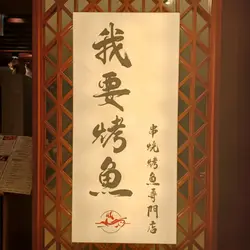 我要烤魚
串燒烤魚專門店